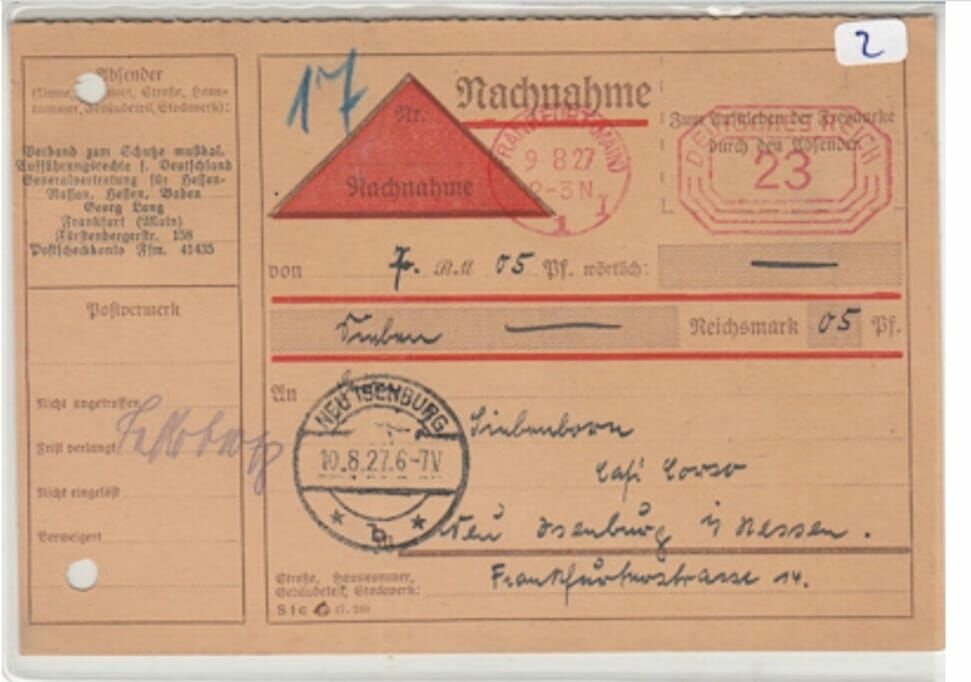 2
Absender
(Name, Wohnort, Straße, Haus-
nummer, Gebäudeteil, Stockwerk):
Verband zum Schutze musikal.
Aufführungsrechte f. Deutschland
Generalvertretung für Hessen-
Nassau, Hessen, Baden
Georg Lang
Frankfurt (Main)
Fürstenbergerstr. 158
Postscheckkonto Ffm. 41435
Postvermerk
Nicht angetroffen
Frist verlangt
Nicht eingelöst
Verweigert
17
Nr.
Nachnahme
Nachnahme
FRANKFURT (MAIN)
9 8 27
2-3 N
1 I
Zum Aufkleben der Freimarke
durch den Absender
DEUTSCHES REICH
23
von 7. RM 05 Pf. wörtlich:
Sieben Reichsmark 05 Pf.
An
NEU ISENBURG
10.8.27.6-7V
* b *
Siebenborn
Café Corso
Neu Isenburg i/ Hessen.
Frankfurterstrasse 14.
Straße, Hausnummer,
Gebäudeteil, Stockwerk: